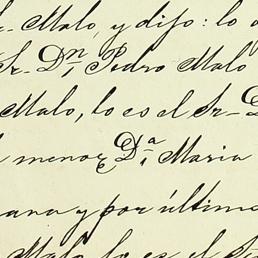 Malo, y dijo: lo
Sr. Dn. Pedro Malo
Malo, lo es el Sr. D
menor Dª. Maria
ana y por última
Malo lo es el